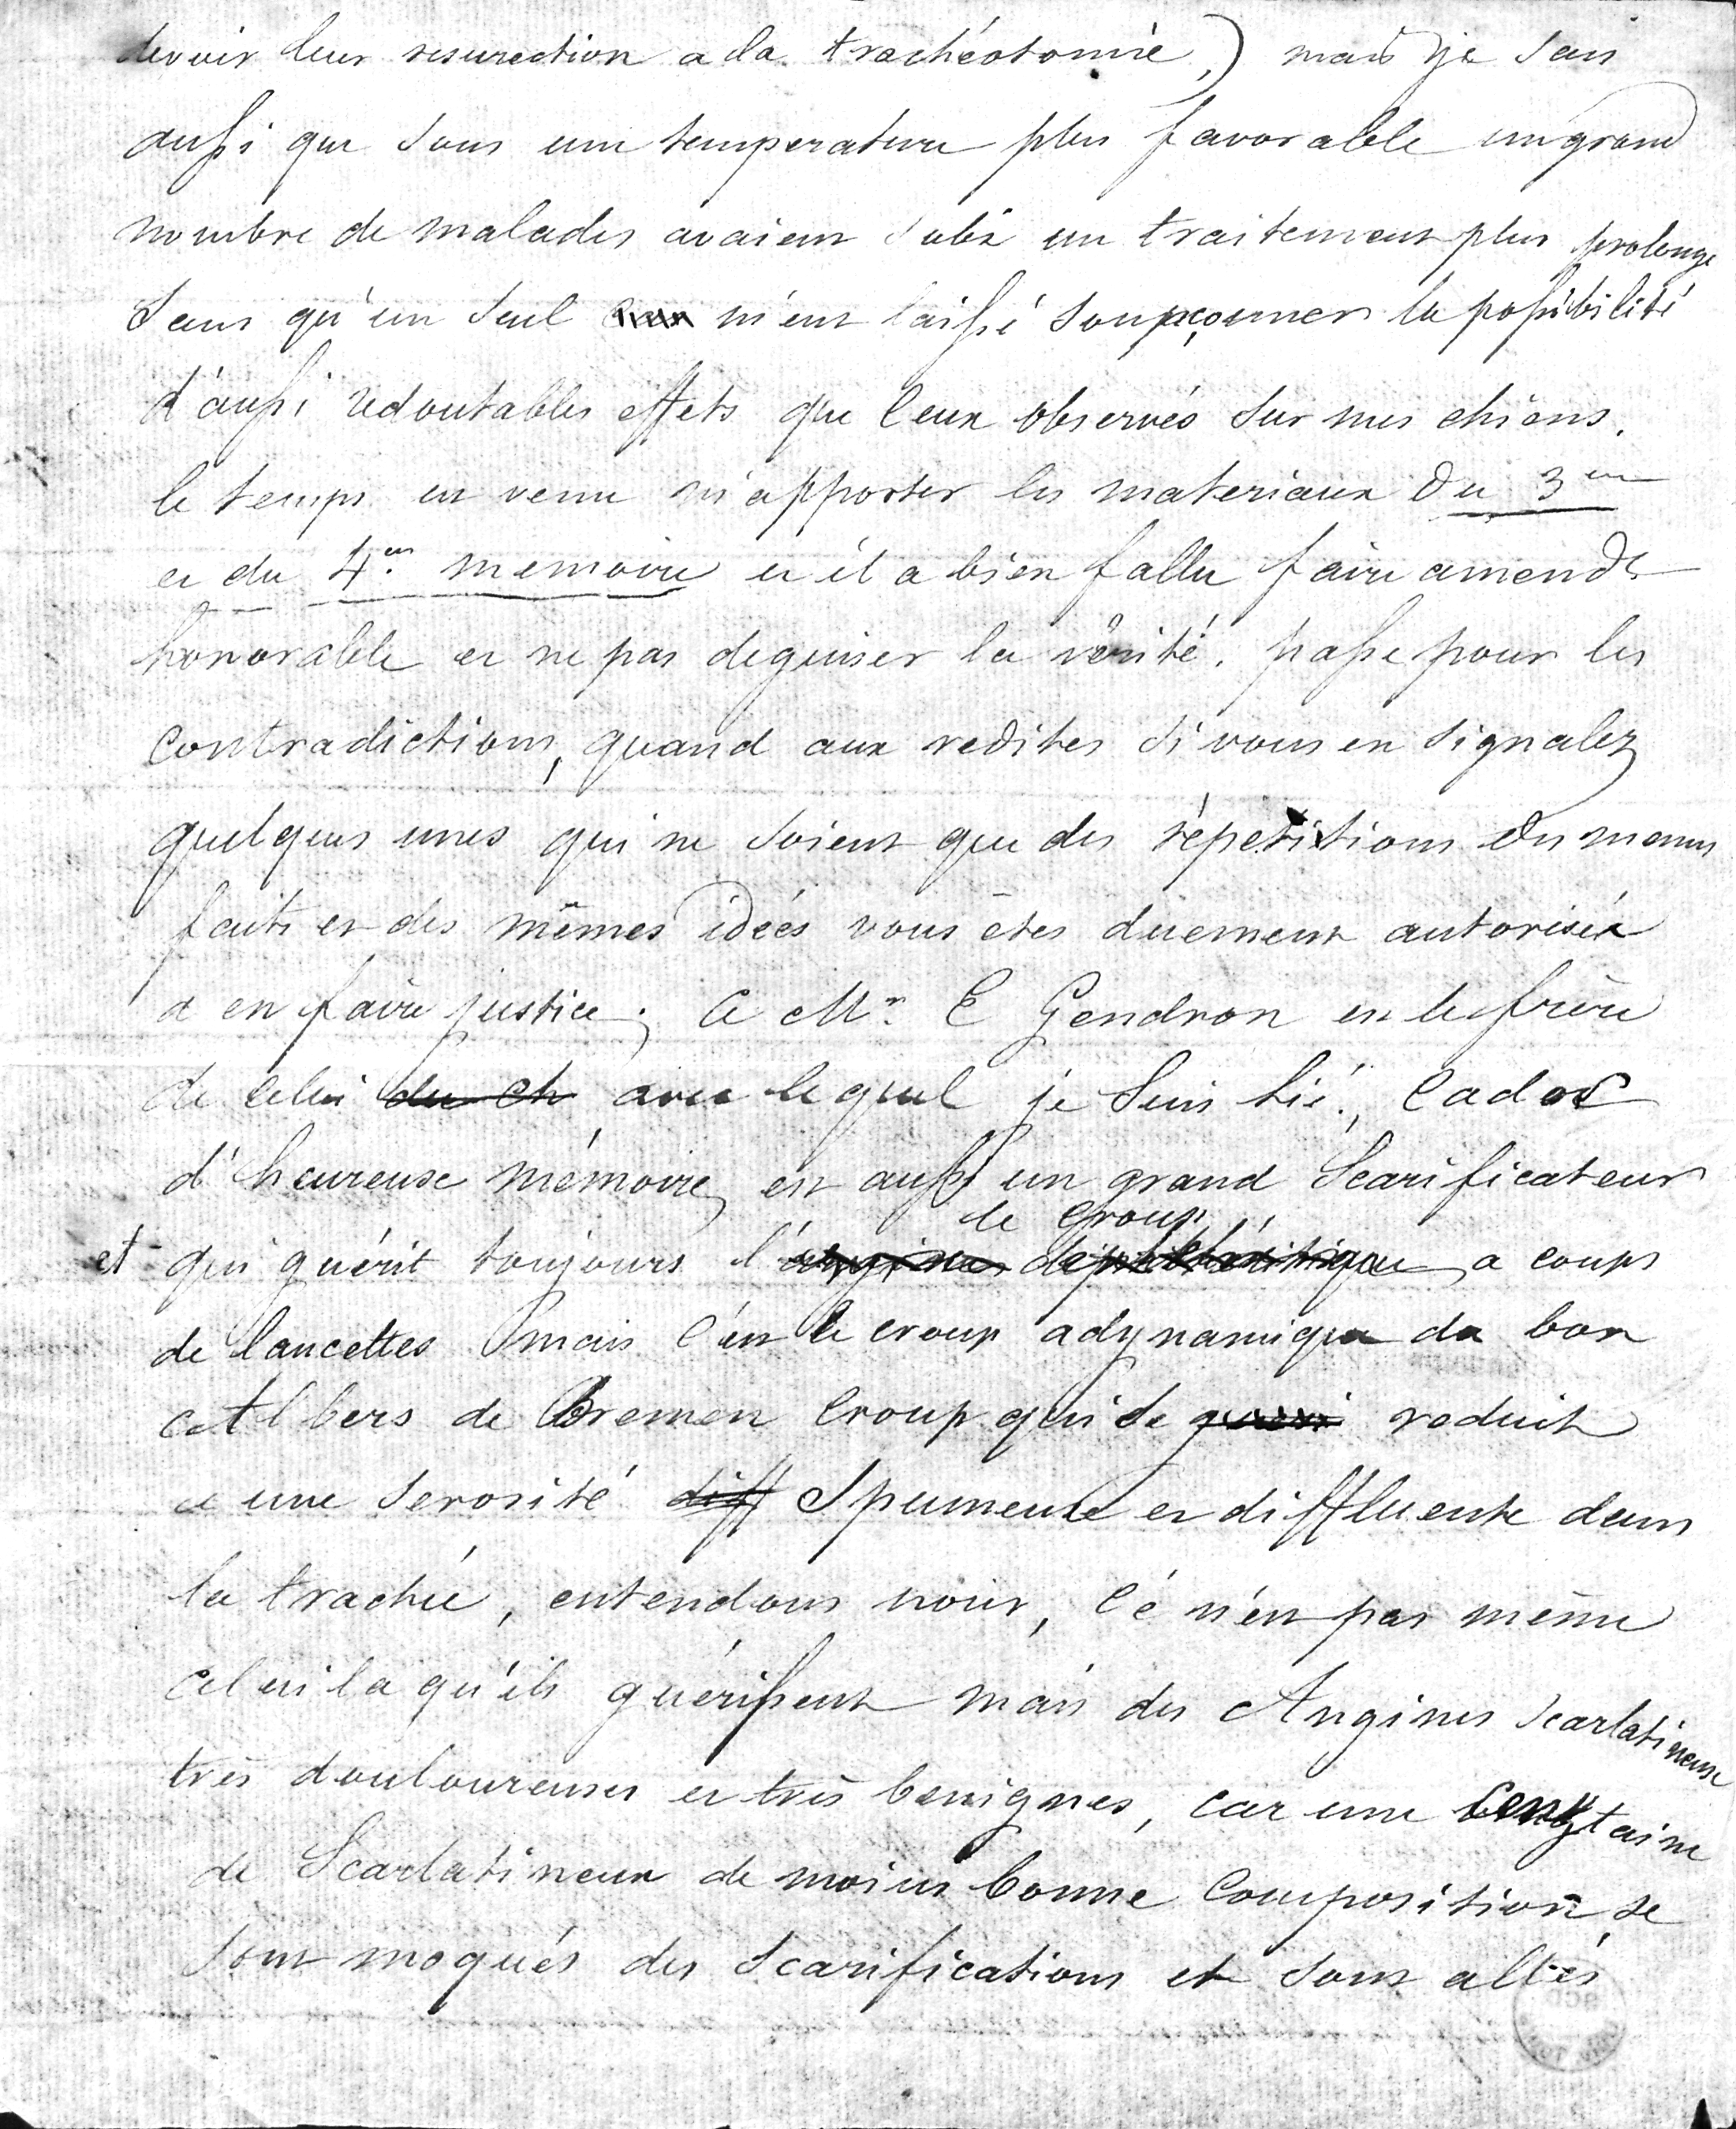 devoir leur resurection a la trachéotomie,) mais je sais
aussi que sous une temperature plus favorable un grand
nombre de malades avaient subi un traitement plus prolongé
sans qu'un seul m'eut laissé soupçonner la possibilité
d'aussi redoutables effets que ceux observés sur mes chiens.
le temps est venu m'apporter les materiaux du 3em
et du 4em memoire et il a bien fallu faire amende
honorable et ne pas deguiser la vérité. passe pour les
contradictions, quand aux redites si vous en signalez
quelques unes qui ne soient que des répetitions des memes
faits et des mêmes idées vous êtes duement autorisés
a en faire justice; Ce Mr. E Gendron est le frère
de celui du ch avec lequel je suis lié.,
d'heureuse mémoire, est aussi un grand Scarificateur
le Croup
et qui guérit toujours l'angine diphthéritique a coups
de lancettes mais c'est le croup adynamique du bon
Albers de Bremen Croup qui se reduit
a une serosité diff Spumeuse et diffluente dans
la trachée, entendons nous, Cé n'est pas même
celui la qu'ils guérissent mais des Angines scarlatineuse
très douloureuses et très benignes, car une centaine
de Scarlatineux de moins bonne Composition se
sont moqués des Scarifications et sont allés